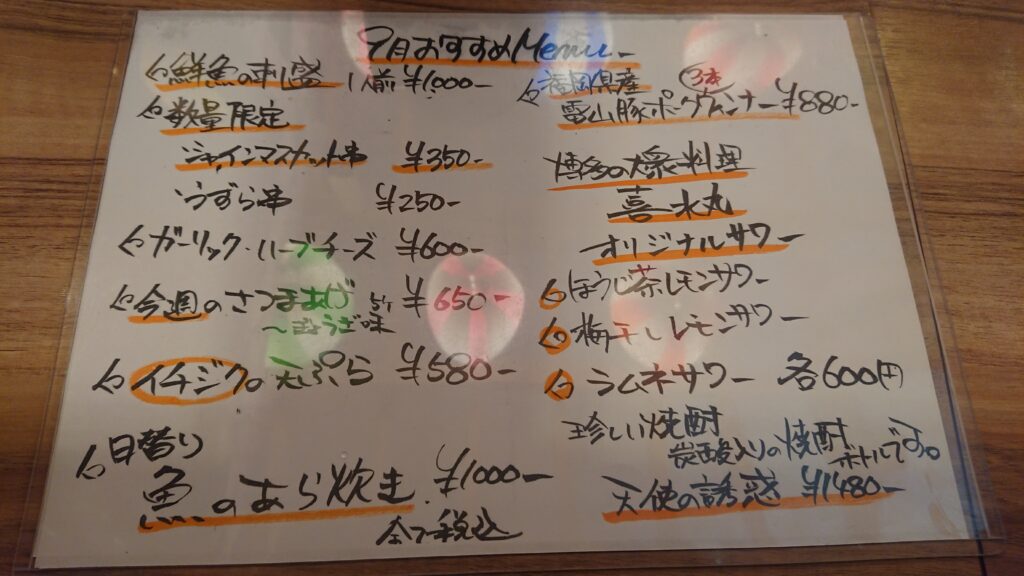 9月おすすめMenu
鮮魚の刺盛 1人前 ¥1,000-
数量限定
シャインマスカット串 ¥350-
うずら串 ¥250-
ガーリック・ハーブチーズ ¥600-
今週のさつまあげ ¥650-
味
イチジクの天ぷら ¥580-
日替り
魚のあら炊き ¥1000-
全て税込
福岡県産 3本
雷山豚ポークウィンナー ¥880-
博多の大衆料理
喜水丸
オリジナルサワー
ほうじ茶レモンサワー
梅干しレモンサワー
ラムネサワー 各600円
珍しい焼酎
炭酸入りの焼酎
ボトルです。
天使の誘惑 ¥1480-